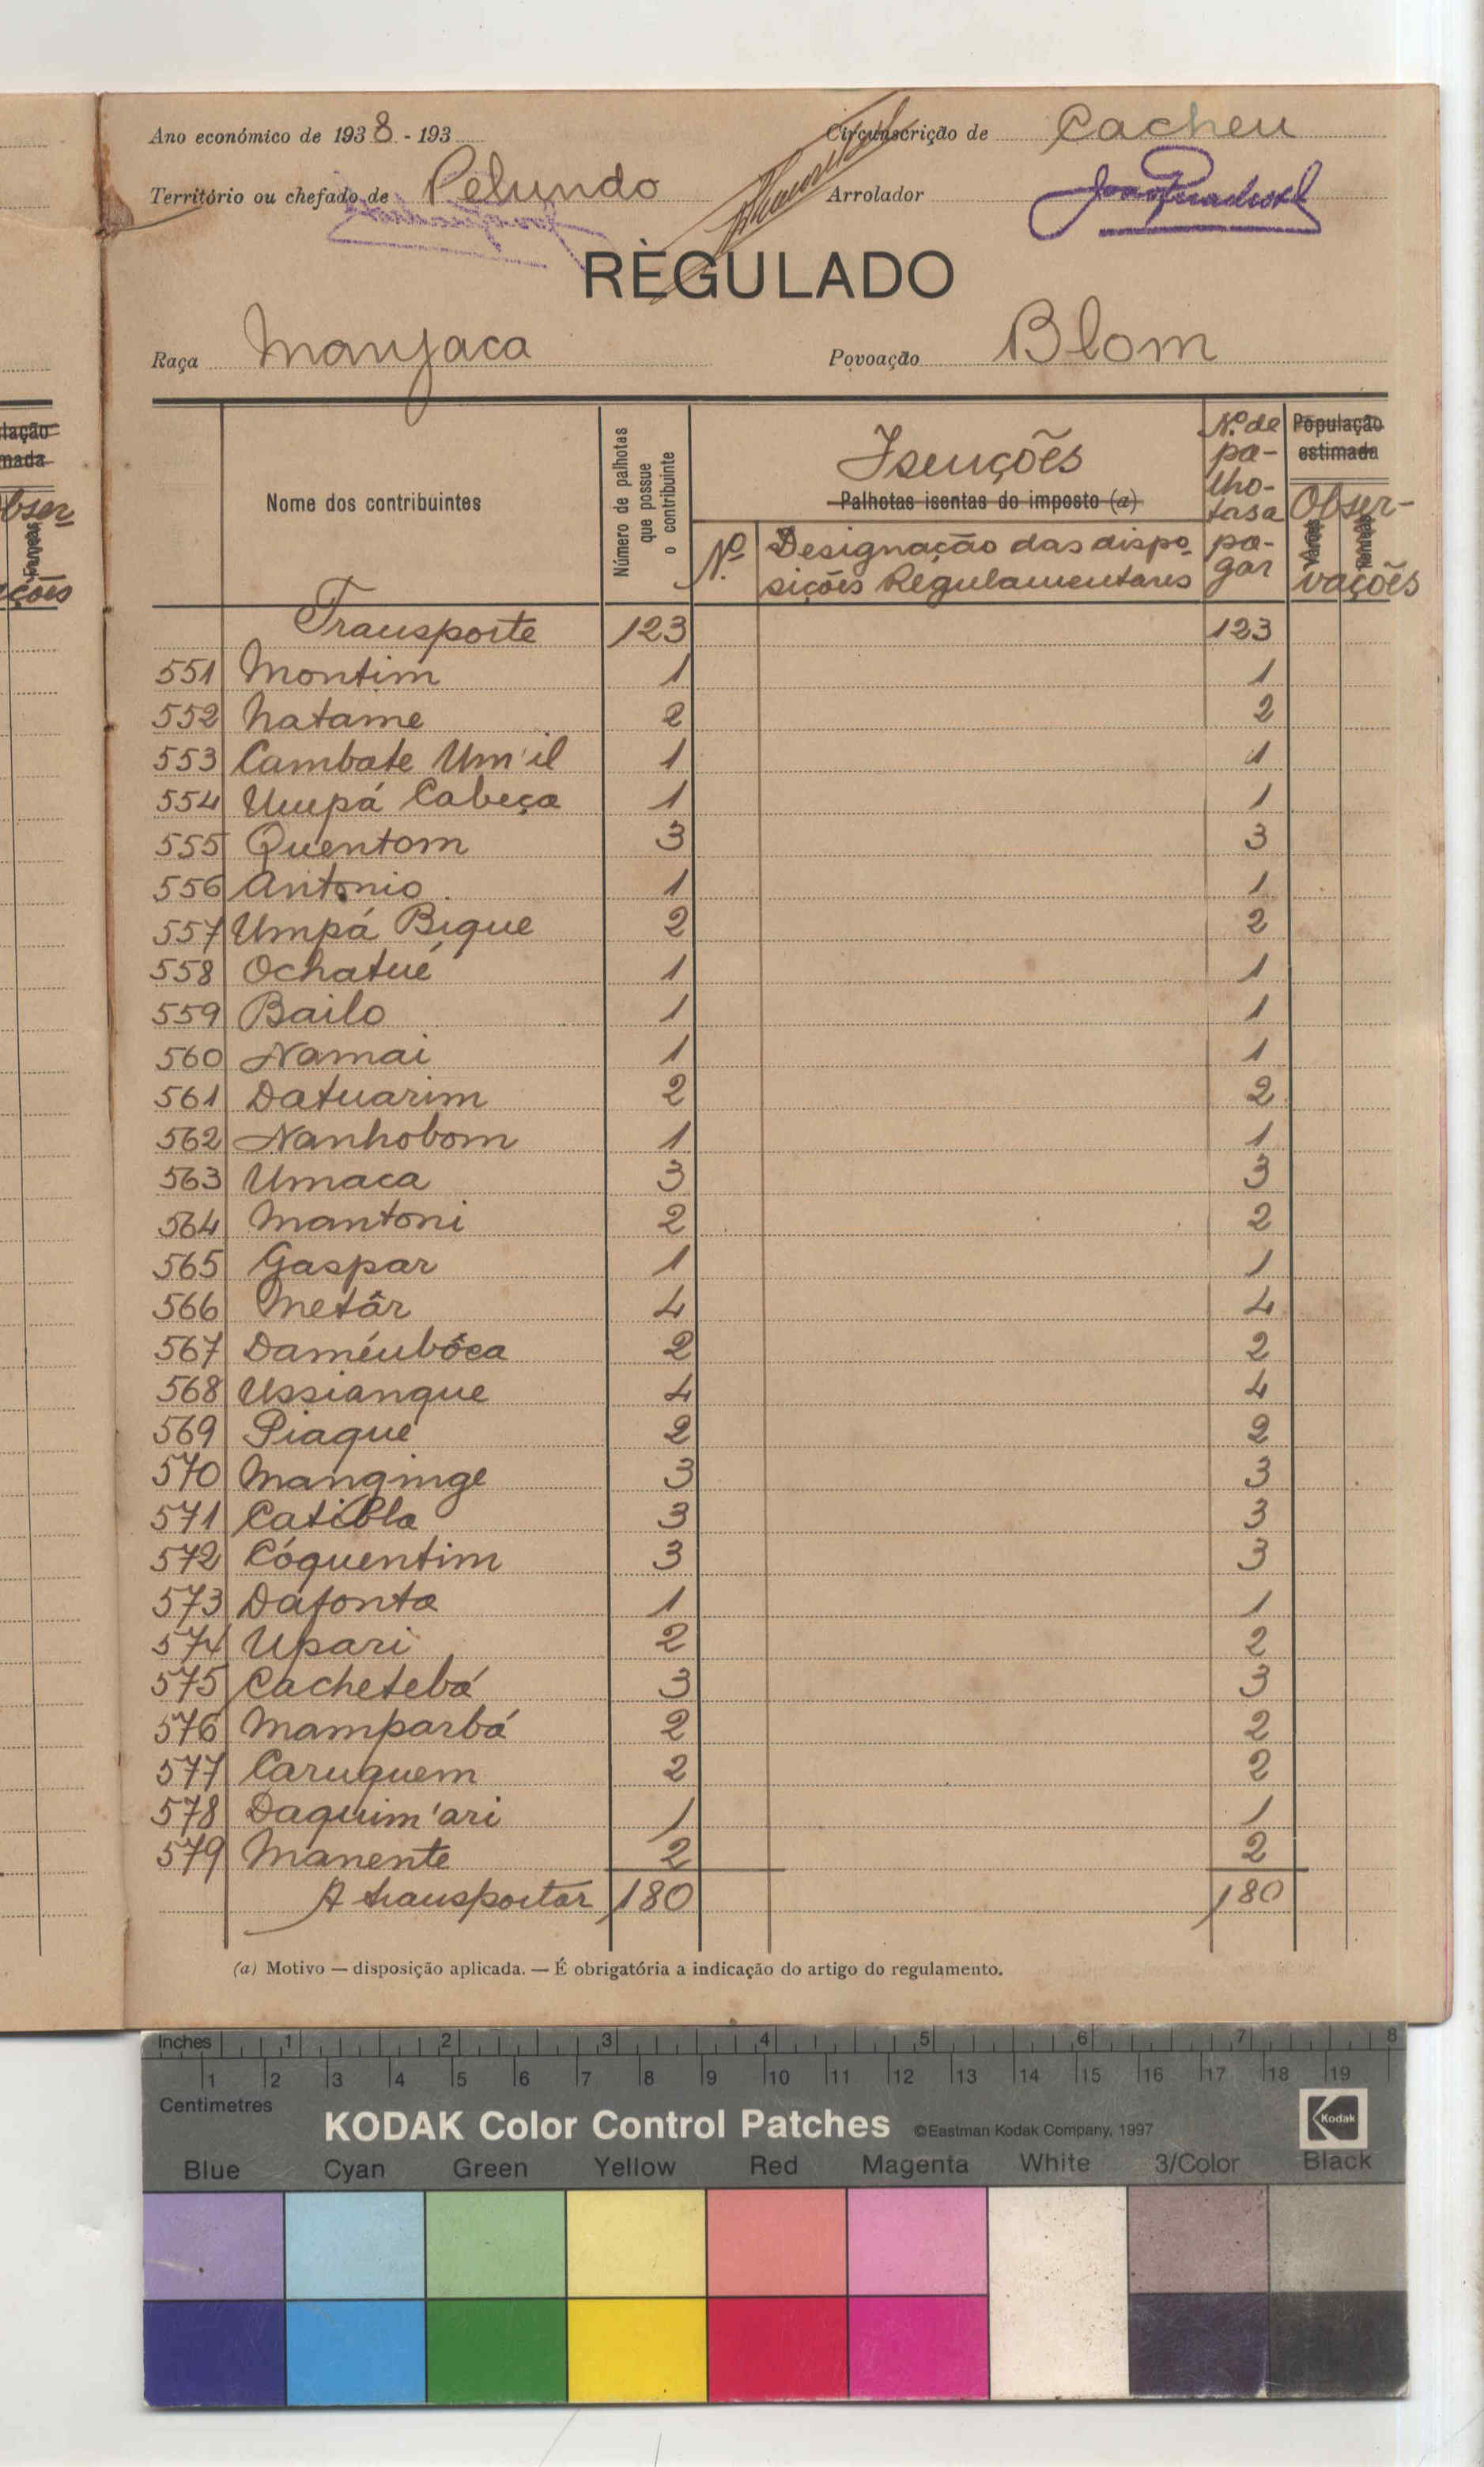 Ano económico de 1938 - 193
Circunscrição de Cacheu
Território ou chefado de Pelundo
Arrolador
REGULADO
Raça Manjaca
Povoação Blom
Nome dos contribuintes
Número de palhotas que possue o contribuinte
Isenções
Palhotas isentas do imposto (a)
Nº
Designação das dispo-
sições Regulamentares
Nº de
pa-
lho-
tas a
pa-
gar
População
estimada
Obser-
vações
Transporte 123 123
551 Montim 1 1
552 Natame 2 2
553 Cambate Um'il 1 1
554 Umpá Cabeça 1 1
555 Quentom 3 3
556 Antonio 1 1
557 Umpá Bique 2 2
558 Ochatué 1 1
559 Bailo 1 1
560 Namai 1 1
561 Datuarim 2 2
562 Nanhobom 1 1
563 Umaca 3 3
564 Mantoni 2 2
565 Gaspar 1 1
566 Metâr 4 4
567 Daméubóca 2 2
568 Ussianque 4 4
569 Piaque 2 2
570 Manginge 3 3
571 Catibla 3 3
572 Cóquentim 3 3
573 Dafonta 1 1
574 Upari 2 2
575 Cachetebá 3 3
576 Mamparbá 2 2
577 Caruquem 2 2
578 Daquim'ari 1 1
579 Manente 2 2
A transportar 180 180
(a) Motivo — disposição aplicada. — É obrigatória a indicação do artigo do regulamento.
Inches 1 2 3 4 5 6 7 8
1 2 3 4 5 6 7 8 9 10 11 12 13 14 15 16 17 18 19
Centimetres
KODAK Color Control Patches ©Eastman Kodak Company, 1997 Kodak
Blue Cyan Green Yellow Red Magenta White 3/Color Black